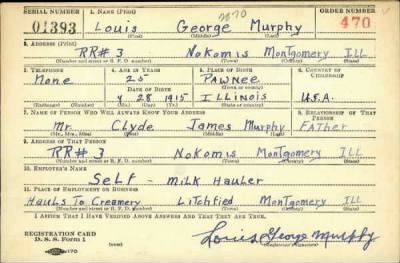 SERIAL NUMBER 1. NAME (Print) ORDER NUMBER
01393 Louis George Murphy 470
(First) (Middle) (Last)
2. ADDRESS (Print)
RR# 3 Nokomis Montgomery Ill
(Number and street or R. F. D. number) (Town) (County) (State)
3. TELEPHONE 4. AGE IN YEARS 5. PLACE OF BIRTH 6. COUNTRY OF CITIZENSHIP
None 25 Pawnee
DATE OF BIRTH (Town or county)
4 28 1915 Illinois U.S.A.
(Mo.) (Day) (Yr.) (State or country)
7. NAME OF PERSON WHO WILL ALWAYS KNOW YOUR ADDRESS 8. RELATIONSHIP OF THAT PERSON
Mr. Clyde James Murphy Father
(Mr., Mrs., Miss) (First) (Middle) (Last)
9. ADDRESS OF THAT PERSON
RR# 3 Nokomis Montgomery Ill
(Number and street or R. F. D. number) (Town) (County) (State)
10. EMPLOYER'S NAME
Self - Milk Hauler
11. PLACE OF EMPLOYMENT OR BUSINESS
Hauls To Creamery Litchfied Montgomery Ill
(Number and street or R. F. D. number) (Town) (County) (State)
I AFFIRM THAT I HAVE VERIFIED ABOVE ANSWERS AND THAT THEY ARE TRUE.
REGISTRATION CARD Louis George Murphy
D. S. S. Form 1 (Registrant's signature)